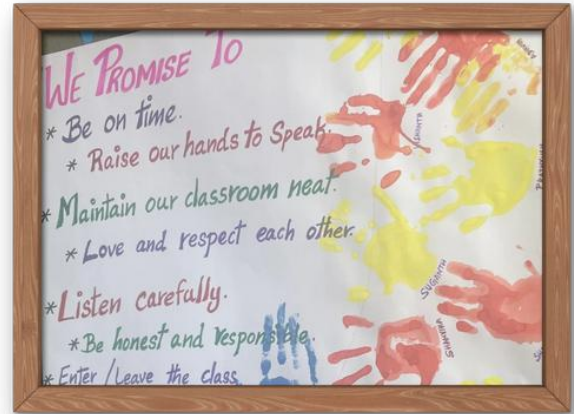 WE PROMISE TO
* Be on time.
* Raise our hands to Speak.
* Maintain our classroom neat.
* Love and respect each other.
* Listen carefully.
* Be honest and responsible.
* Enter / Leave the class
SUGANTH